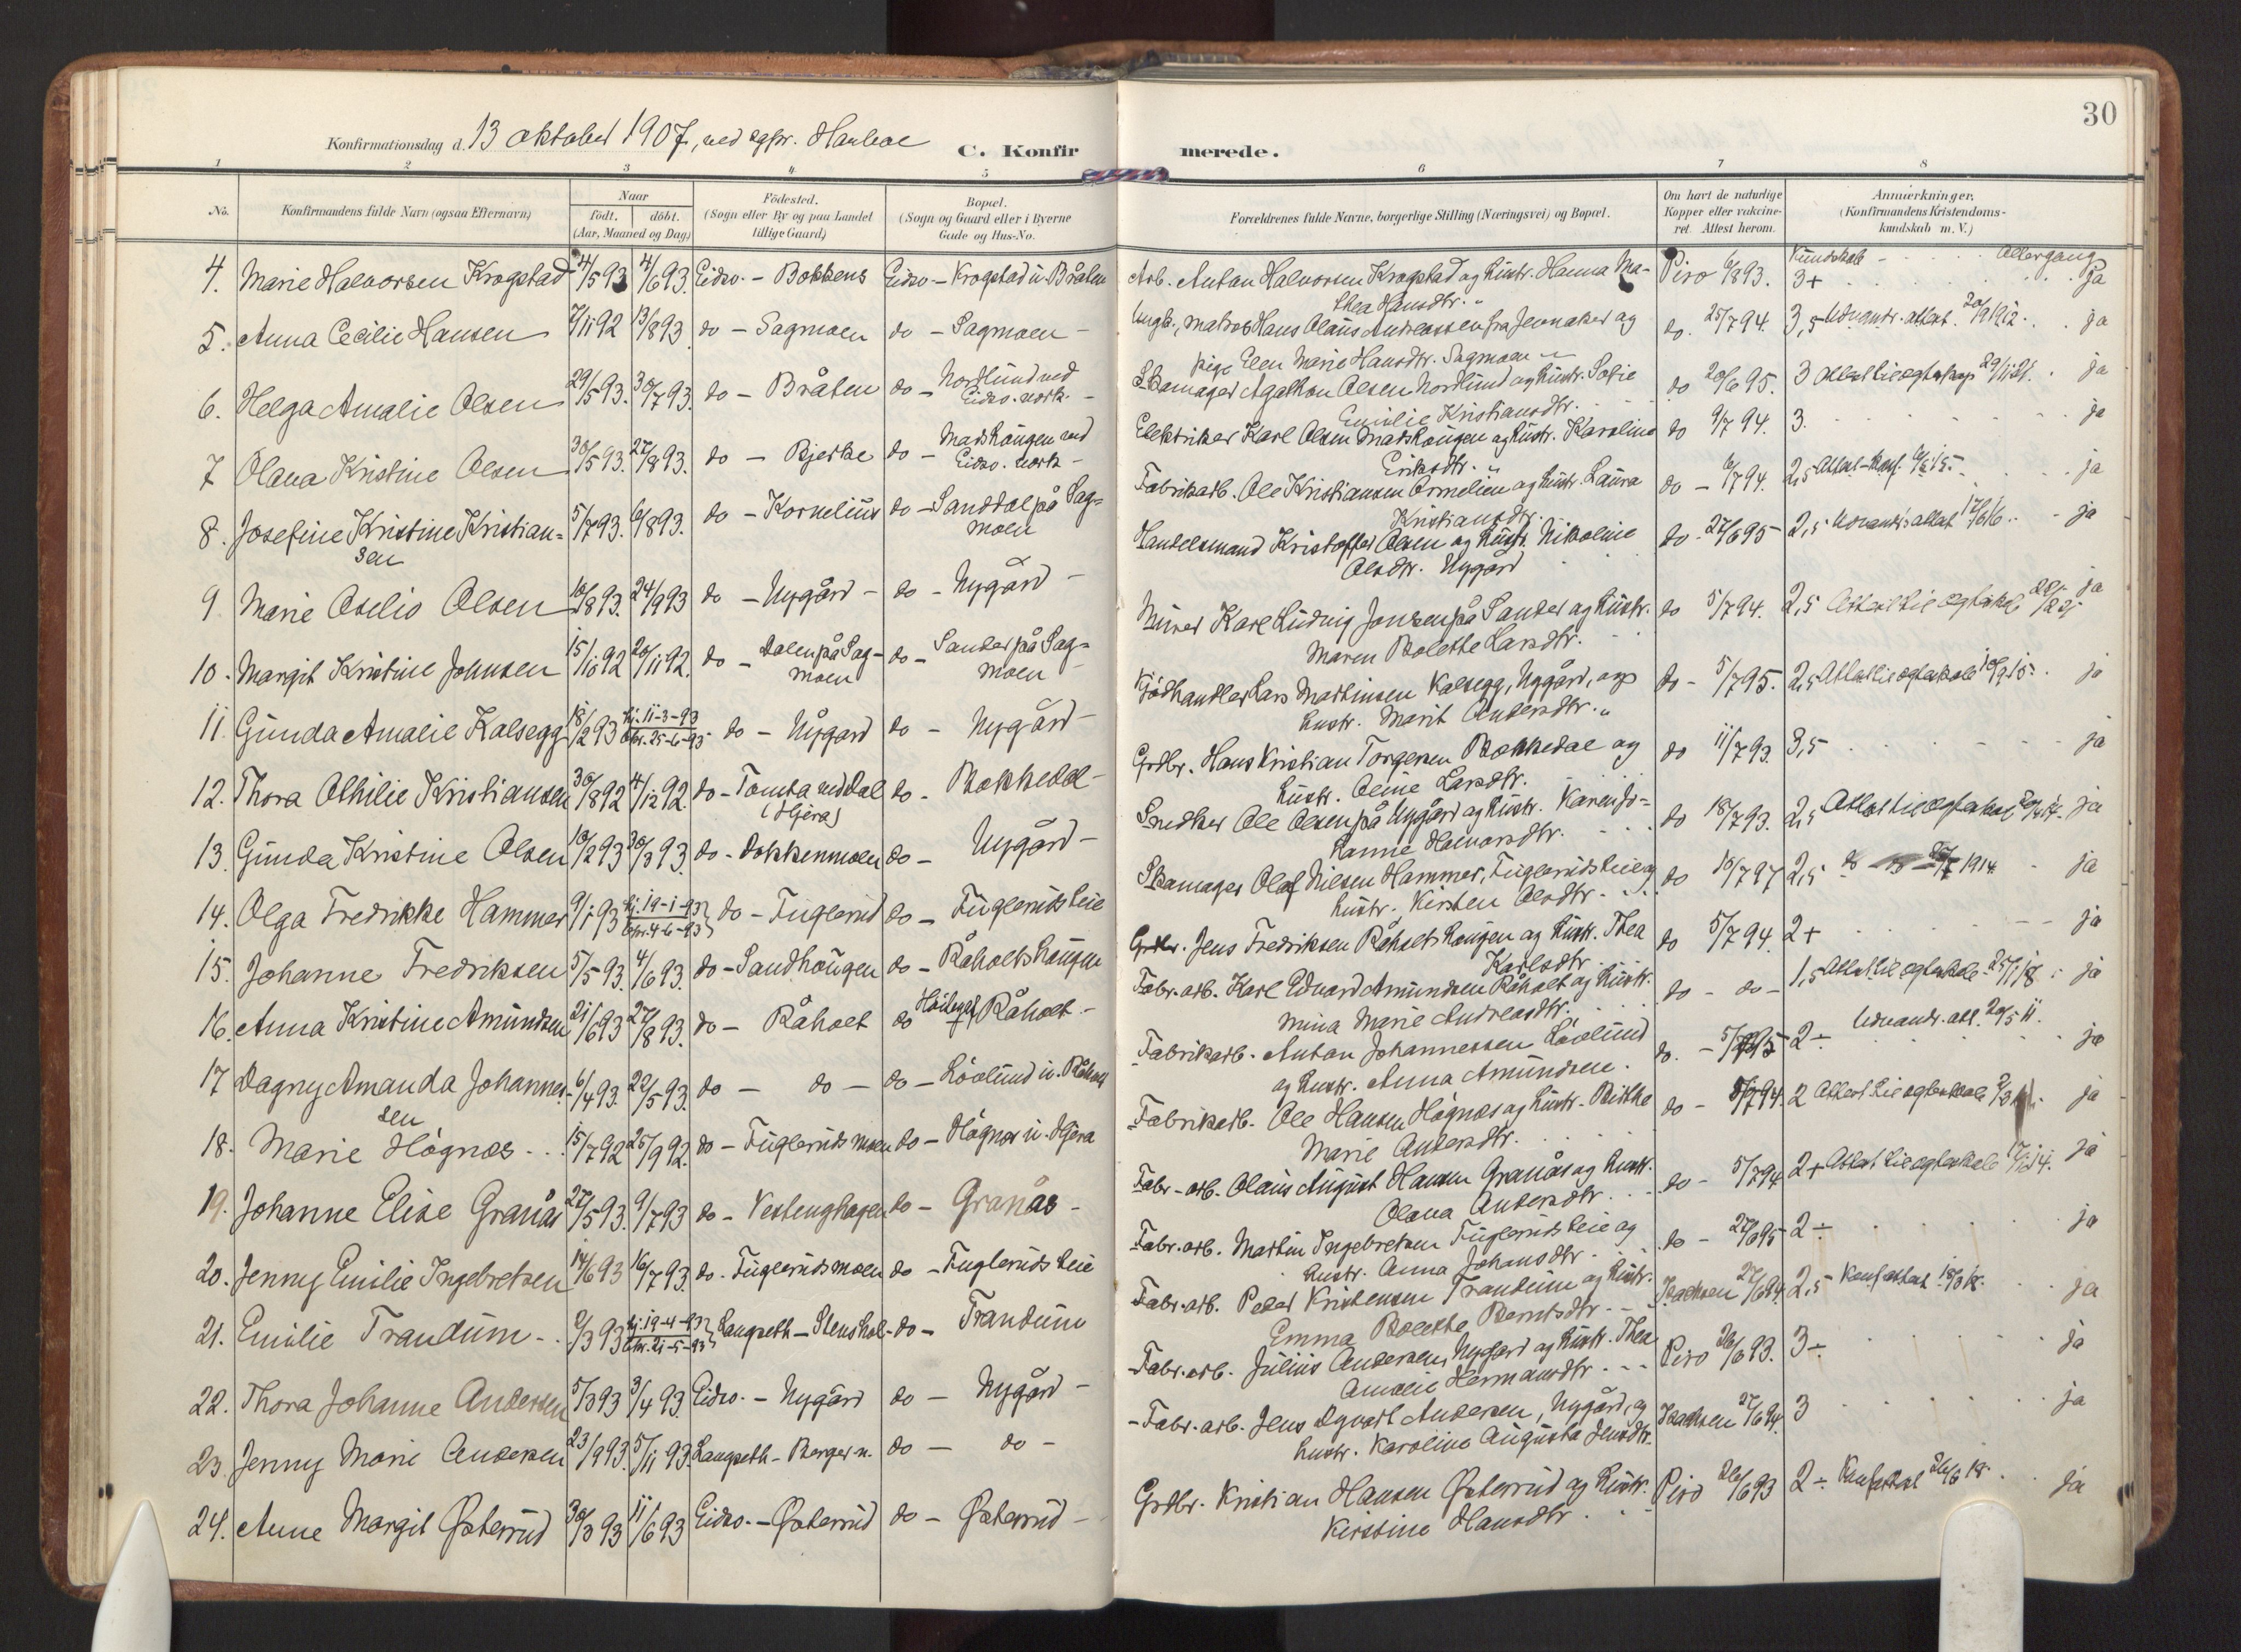 30
Konfirmationsdag d. 13 oktober 1907, ved sgpr.
C. Konfirmerede.
1 2 3 4 5 6 7 8
No.
Konfirmandens fulde Navn (ogsaa Efternavn)
Naar
født. døbt.
(Aar, Maaned og Dag)
Fødested.
(Sogn eller By og paa Landet
tillige Gaard)
Bopæl.
(Sogn og Gaard eller i Byerne
Gade og Hus-No.
Forældrenes fulde Navne, borgerlige Stilling (Næringsvei) og Bopæl.
Om havt de naturlige
Kopper eller vakcine-
ret. Attest herom.
Anmærkninger,
(Konfirmandens Kristendoms-
kundskab m. V.)
Kundskab - Altergang
4. Marie Halvorsen Krogstad 4/5 93 4/6 93. Eidsv. - Bokkens Eidsv. - Krogstad u. Bråten Arb. Anton Halvorsen Krogstad og hustr. Hanna Ma-
thea Hansdtr. Piro 6/8 93. 3+ ja
5. Anna Cecilie Hansen 7/11 92 13/8 93. do - Sagmoen do - Sagmoen - Ungk., matros Hans Olaus Andreassen fra Jevnaker og
pige Elen Marie Hansdtr. Sagmoen do. 25/7 94. 3,5 Udvandr. attest. 20/9 1912. ja
6. Helga Amalie Olsen 29/5 93. 30/7 93. do - Bråten do - Nordlund ved
Eidsv. verk. - Skomager Agathon Olsen Nordlund og hustr. Sofie
Emilie Kristiansdtr. do 20/6 95. 3 Attest til ægteskap 29/11 21. ja
7 Olava Kristine Olsen 30/5 93. 27/8 93. do - Bjerke do - Madshaugen ved
Eidsv. verk - Elektriker Karl Olsen Madshaugen og hustr. Karoline
Eriksdtr. do 9/7 94. 3. ja
8. Josefine Kristine Kristian=
sen 5/7 93. 6/8 93. do - Kornelius do - Sanddal på Sag=
moen Fabrikarb. Ole Kristiansen og hustr. Laura
Kristiansdtr. do - 6/7 94. 2,5 Attest - konf. ja
9. Marie Oselio Olsen 10/8 93. 24/9 93 do - Nygård - do - Nygård - Handelsmand Kristoffer Olsen og hustr. Nikoline
Olsdtr. Nygård do - 27/6 95 2,5 Udvandr. attest 17/6 16. ja
10. Margit Kristine Johnsen 15/10 92 20/11 92. do - Dalen på Sag-
moen do - Sander på Sag=
moen Murer Karl Ludvig Jonsen på Sander og hustr.
Maren Bolette Larsdtr. do 5/7 94. 2,5 Attest til ægteskab ja
11. Gunda Amalie Kalsegg 18/2 93 hj. 11-3-93
fr. 25-6-93 do - Nygard do - Nygård - Kjødhandler Lars Martinsen Kalsegg, Nygård, og
hustr. Marit Andersdtr. do - 5/7 95. 2,5 Attest til ægteskab ja
12. Thora Othilie Kristiansen 30/8 92 4/12 92. do - Tomta ved Dal
(Hjera) do - Bokkedal - Grdbr. Hans Kristian Torgersen Bokkedal og
hustr. Oline Larsdtr. do 11/7 93. 3,5 ja
13. Gunda Kristine Olsen 10/2 93 30/3 93. do - Dokkenmoen do - Nygård - Snedker Ole Olsen på Nygård og hustr. Karen Jo=
hanne Halvorsdtr. do 18/7 93. 2,5 Attest til ægteskab ja
14. Olga Fredrikke Hammer 9/1 93 hj. 19-1-93
fr. 4-6-93 do - Fuglerud do - Fuglerudsheie Skomager Olaf Nilsen Hammer, Fuglerudsheie og
hustr. Kirsten Olsdtr. do 10/7 97 2,5 1914 ja
15. Johanne Fredriksen 5/5 93. 4/6 93. do - Sandhaugen do - Råholtshaugen Grdbr. Jens Fredriksen Råholtshaugen og hustr. Thea
Karlsdtr. do 5/7 94. 2+ ja
16. Anna Kristine Amundsen 21/6 93 27/8 93. do - Råholt do Råholt - Fabr.arb. Karl Edvard Amundsen Råholt og hustr.
Mina Marie Andreasdtr. do - do - 1,5 Attest til ægteskab 25/1 18. ja
17 Dagny Amanda Johannes-
sen 6/4 93. 22/5 93. do - do - do - Lövlund u. Råholt Fabrikarb. Anton Johannessen Lövlund
og hustr. Anna Amundsen. do. - 2÷ Udvandr. att. 20/5 11. ja
18. Marie Högnæs 15/7 92 25/9 92. do - Fuglerudsmoen do - Högnæs u. Hjera Fabrikarb. Ole Hansen Högnæs og hustr. Birthe
Marie Andersdtr. do - 5/7 94. 2 Attest til ægteskab ja
19. Johanne Elise Granås 27/5 93. 9/7 93 do - Vestenghagen do - Granås - Fabr-arb. Olaus August Hansen Granås og hustr.
Olava Andersdtr. do - 5/7 94 2+ Attest til ægteskab ja
20. Jenny Emilie Ingebretsen 14/6 93 16/7 93. do - Fuglerudsmoen do - Fuglerudsheie Fabr.arb. Martin Ingebretsen Fuglerudsheie og
hustr. Anna Johansdtr do - 27/6 95 2÷ ja
21. Emilie Trandum 2/3 93 hj. 19-4-93
fr. 21-5-93 Langseth - Stenshol - do - Trandum Fabr.arb. Peder Kristensen Trandum og hustr.
Emma Bolette Berntsdtr. Isachsen 27/6 94. 2,5 Konf.attest 18/3 18. ja
22. Thora Johanne Andersen 5/3 93 3/4 93. Eidsv. - Nygård do - Nygård - Fabr.arb. Julius Andersen, Nygård og hustr. Thea
Amalie Hermansdtr. Piro 26/6 93. 3÷ ja
23. Jenny Marie Andersen 23/9 93. 5/11 93. Langseth - Berger u. do - do - Fabr.arb. Jens Agvart Andersen, Nygård, og
hustr. Karoline Augusta Jensdtr. Isachsen 27/6 94. 3 ja
24. Anne Margit Østerud 30/3 93 11/6 93 Eidsv. - Østerud do - Østerud - Grdbr. Kristian Hansen Østerud og hustr.
Kirstine Hansdtr. Piro 26/6 93 2÷ Konf.attest 26/6 18. ja